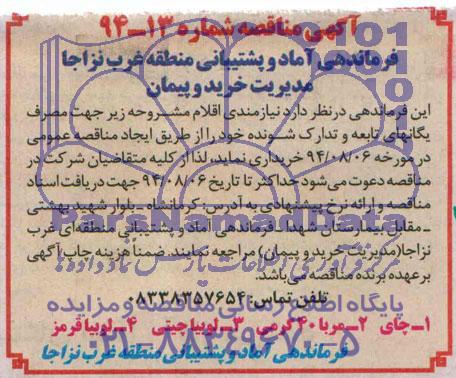 آگهی مناقصه شماره ۱۳-۹۴
فرماندهی آماد و پشتیبانی منطقه غرب نزاجا
مدیریت خرید و پیمان
این فرماندهی در نظر دارد نیازمندی اقلام مشروحه زیر جهت مصرف
یگانهای تابعه و تدارک شونده خود را از طریق ایجاد مناقصه عمومی
در مورخه ۹۴/۰۸/۰۶ خریداری نماید، لذا از کلیه متقاضیان شرکت در
مناقصه دعوت می‌شود حداکثر تا تاریخ ۹۴/۰۸/۰۶ جهت دریافت اسناد
مناقصه و ارائه نرخ پیشنهادی به آدرس: کرمانشاه - بلوار شهید بهشتی
- مقابل بیمارستان شهدا - فرماندهی آماد و پشتیبانی منطقه‌ای غرب
نزاجا (مدیریت خرید و پیمان) مراجعه نمایند. ضمناً هزینه چاپ آگهی
بر عهده برنده مناقصه می‌باشد.
تلفن تماس: ۰۸۳۳۸۳۵۷۶۵۴
۱-چای ۲-مربا ۴۰ گرمی ۳-لوبیا چیتی ۴-لوبیا قرمز
فرماندهی آماد و پشتیبانی منطقه غرب نزاجا
ParsNamadData
مرکز فرآوری اطلاعات پارس نماد داده‌ها
پایگاه اطلاع رسانی مناقصه و مزایده
۰۲۱-۸۸۳۴۹۶۷۰-۵